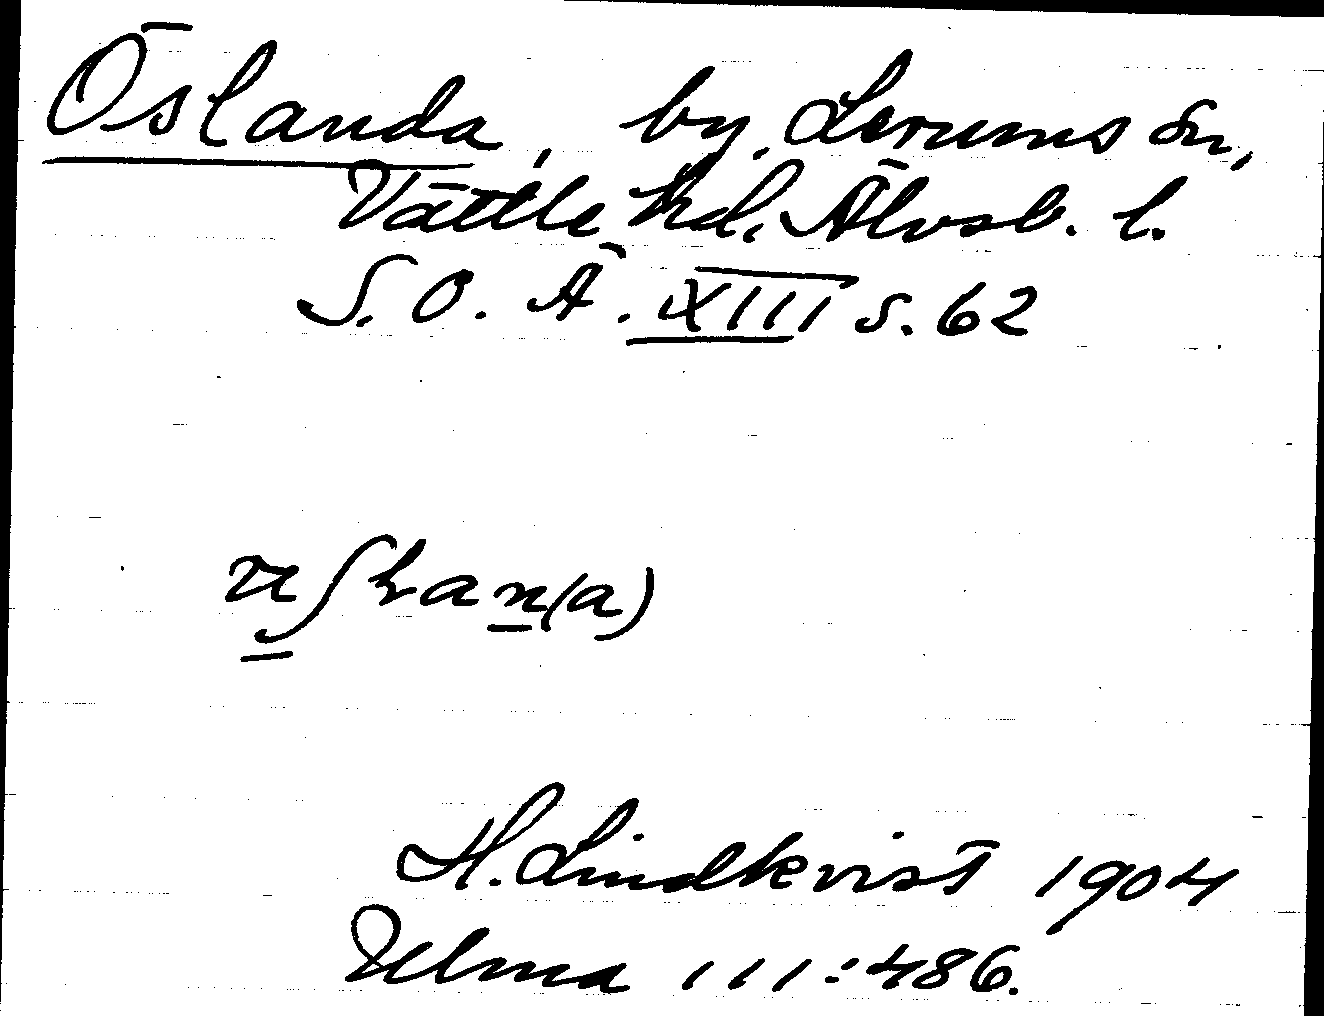 Öslanda, by, Lerums sn,
Vättle hd. Älvsb. l.
S. O. Ä. XIII s. 62
H. Lindkvist 1904
Ulma 111:486.